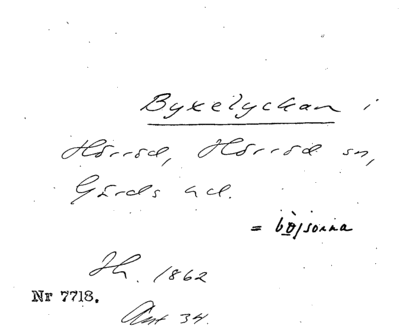 Byxelyckan i
Hörröd, Hörröd sn,
Gärds hd.
= bòjsorna
Jh. 1862
Nr 7718.
Ant 34.